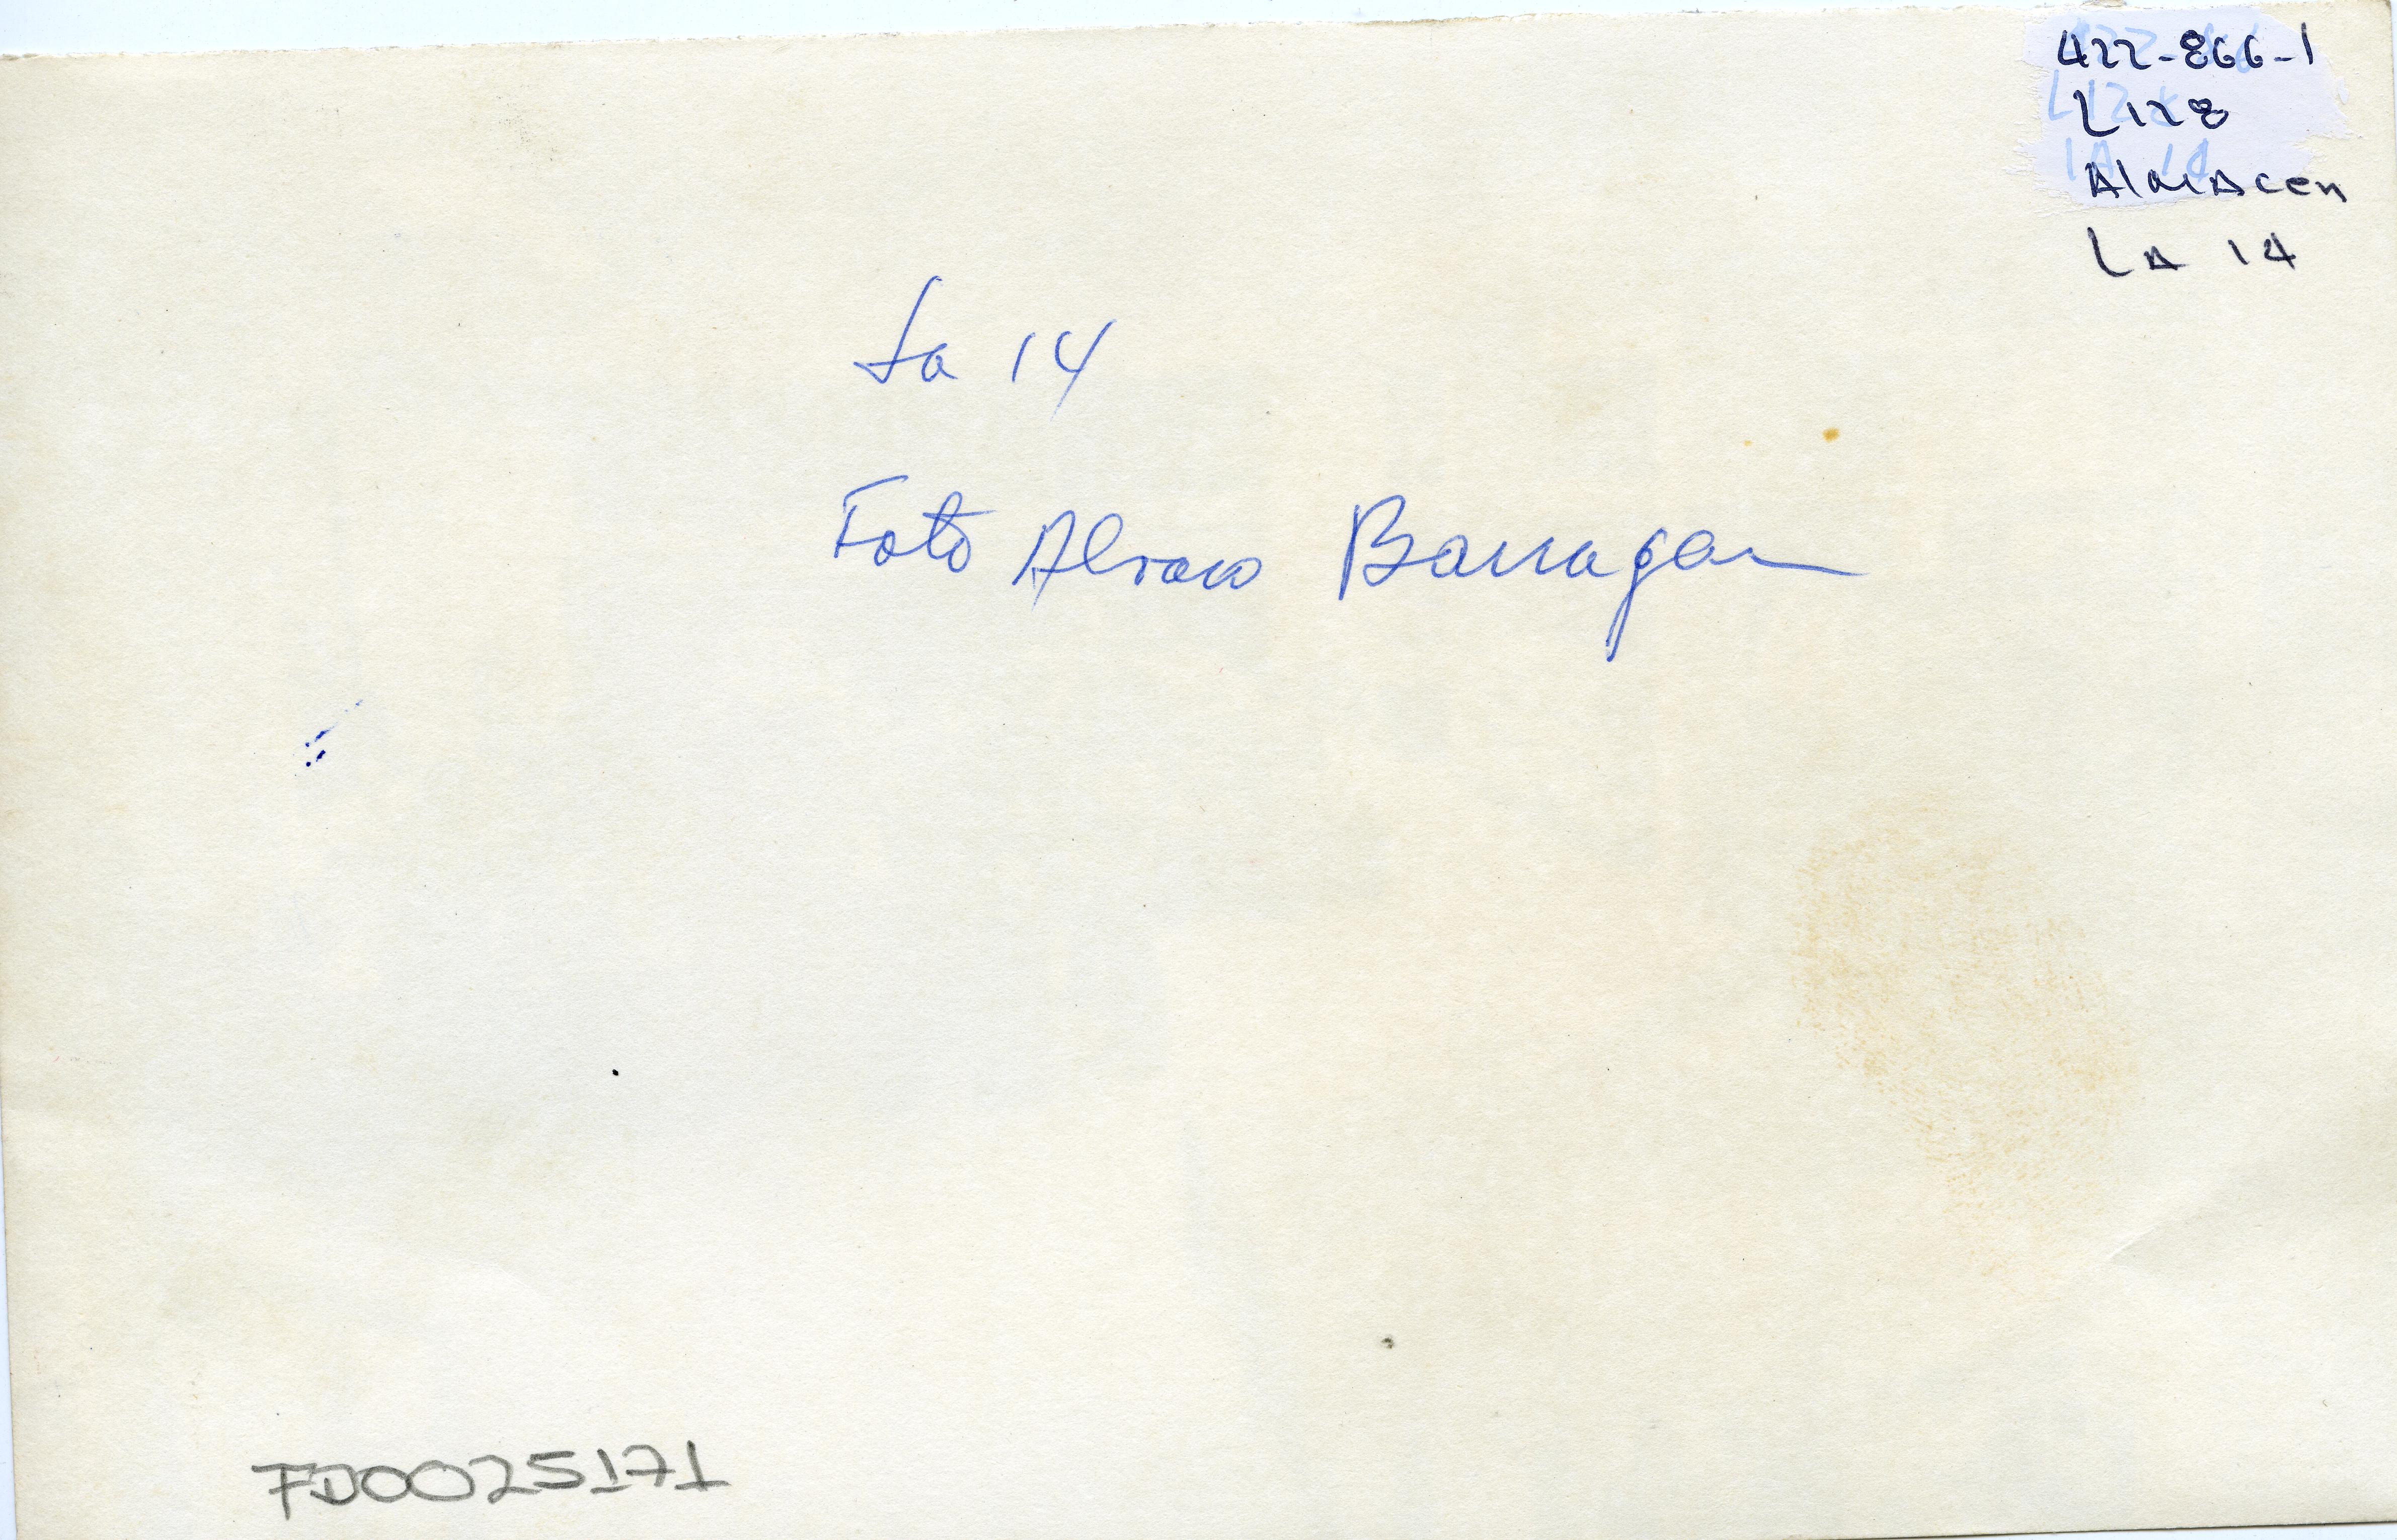 422-866-1
L128
Almacen
LA 14
La 14
Foto Alvaro Barragan
FD0025171